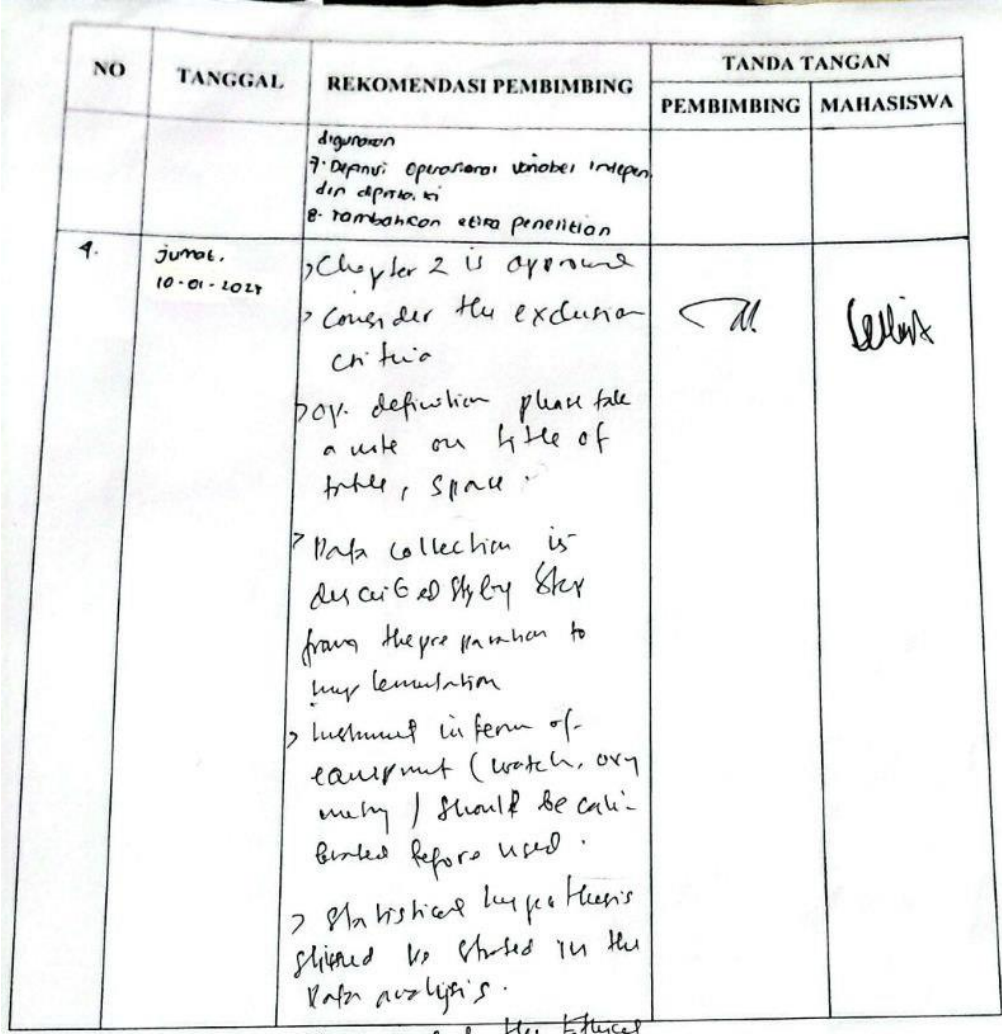 NO TANGGAL REKOMENDASI PEMBIMBING TANDA TANGAN
PEMBIMBING MAHASISWA
digunakan
7. Definisi operasional variabel indepen
den diperbaiki
8. Tambahkan etika penelitian
4. jumat,
10-01-2025
> Chapter 2 is approved
> Consider the exclusion
criteria
> Op. definition please take
a note on title of
table, space.
> Data collection is
described step by step
from the preparation to
implementation
> Instrument in term of
equipment (watch, oxy
metry) should be cali-
brated before used.
> Statistical hypothesis
should be stated in the
Data analysis.
the Ethical